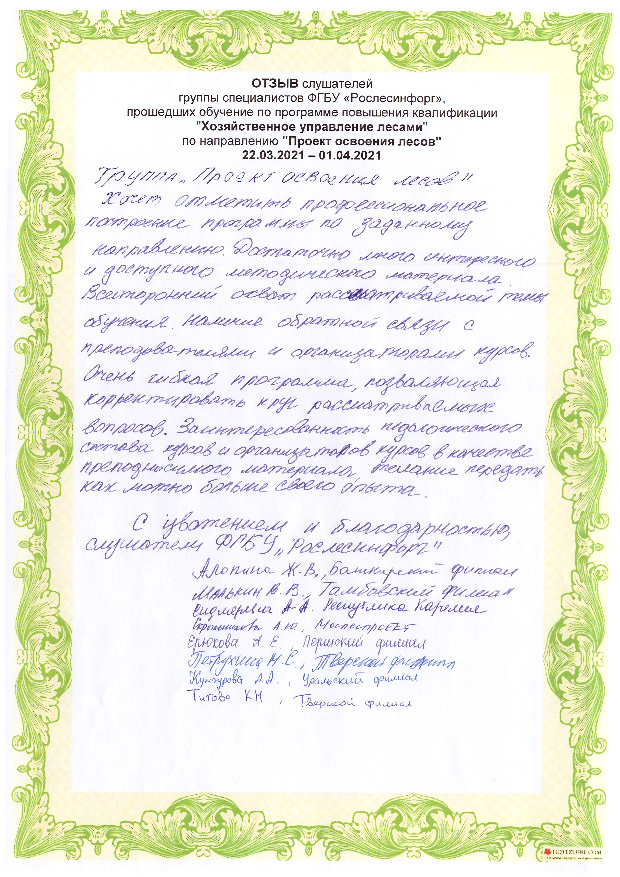 ОТЗЫВ слушателей
группы специалистов ФГБУ «Рослесинфорг»,
прошедших обучение по программе повышения квалификации
"Хозяйственное управление лесами"
по направлению "Проект освоения лесов"
22.03.2021 – 01.04.2021
Группа „Проект освоения лесов"
Хочет отметить профессиональное
построение программы по заданному
направлению. Достаточно много интересного
и доступного методического материала.
Всесторонний охват рассматриваемой темы
обучения. Наличие обратной связи с
преподавателями и организаторами курсов.
Очень гибкая программа, позволяющая
корректировать круг рассматриваемых
вопросов. Заинтересованность педагогического
состава курсов и организаторов курсов в качестве
преподносимого материала, желание передать
как можно больше своего опыта.
С уважением и благодарностью,
слушатели ФГБУ „Рослесинфорг"
Ж.В., Башкирский филиал
Манькин В.В., Тамбовский филиал
А.А. Республика Карелия
А.Ю., Мослеспроект
Ершова А.Е., Пермский филиал
Петрухина Н.С., Тверской филиал
А.А., Уральский филиал
Титова К.Н., Тверской филиал